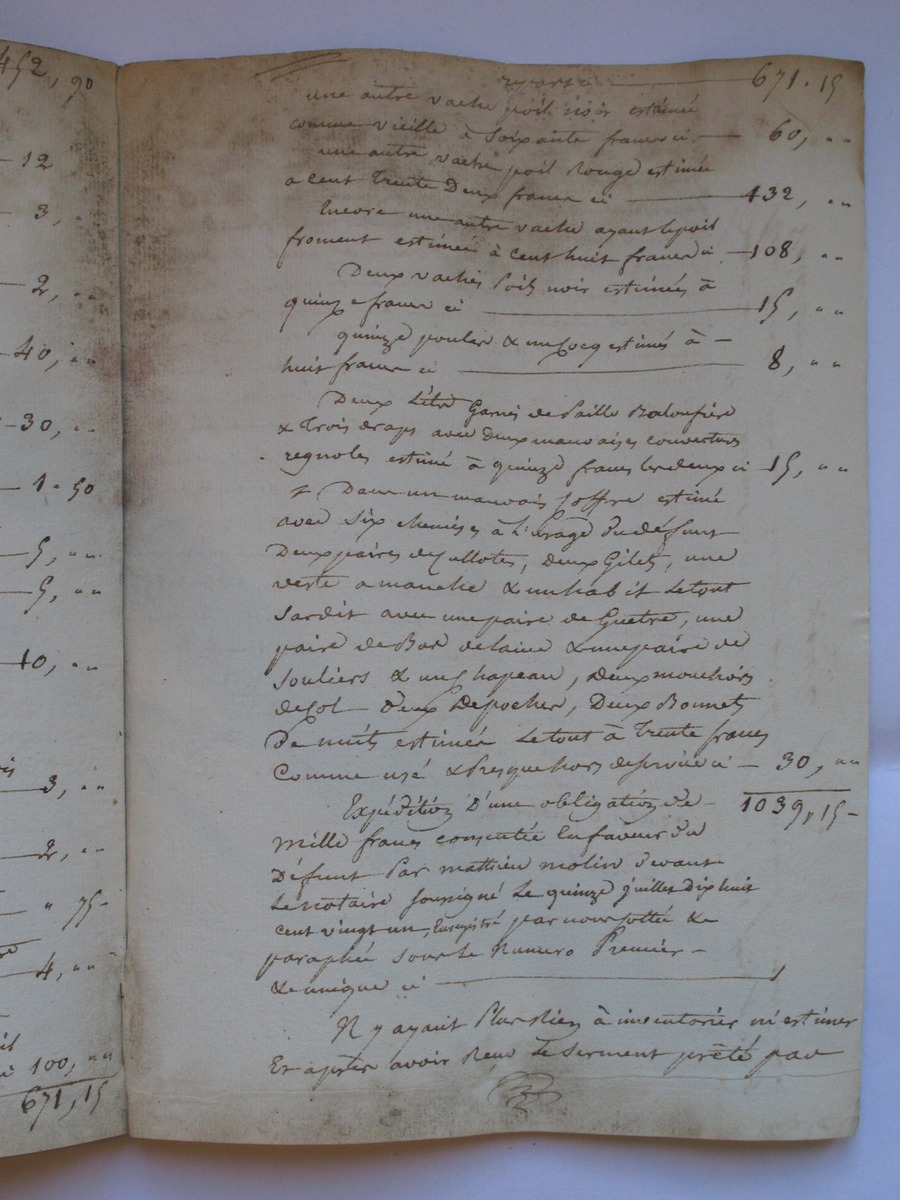 452, 90
12
3, "
2, "
40, "
30, "
1 - 50
5, "
5, "
10, "
3, "
2, "
" 75
4, "
100, "
671, 15
report ci — 671 . 15
une autre vache poil noir estimé
comme vieille à Soixante francs ci — 60, "
une autre vache poil Rouge estimée
a cent Trente Deux francs ci — 132, "
Encore une autre vache ayant le poil
froment estimée à cent huit francs ci — 108, "
Deux vaches Poils noir estimées à
quinze francs ci — 15, "
quinze poules & un Cocq estimés à —
huit francs ci — 8, "
Deux Lits Garnis de Paille
& Trois draps avec Deux mauvaises couvertures
estimé à quinze francs les deux ci — 15, "
Dans un mauvais Coffre estimé
avec Six chemises à L'usage du défunt
Deux paires de Cullottes, deux Gilets, une
veste a manche & un habit Le tout
Sardit avec une paire de Guetre, une
paire de Bas de laine & une paire de
Souliers & un Chapeau, Deux mouchoirs
de Col Deux De pocher, Deux Bonnets
De nuits estimée Le tout à Trente francs
Comme usé & Presque hors de service ci — 30, "
1039, 15 -
Expédition D'une obligation de —
Mille francs consentée En faveur du
Défunt Par Mathieu Molin devant
Le notaire soussigné Le quinze juillet Dix huit
cent vingt un, Enregistré par nous cottée &
paraphée sous le Numero Premier —
& unique ci — 1
N'y ayant Plus Rien à inventorier ni estimer
Et après avoir Reçu Le Serment prêté par